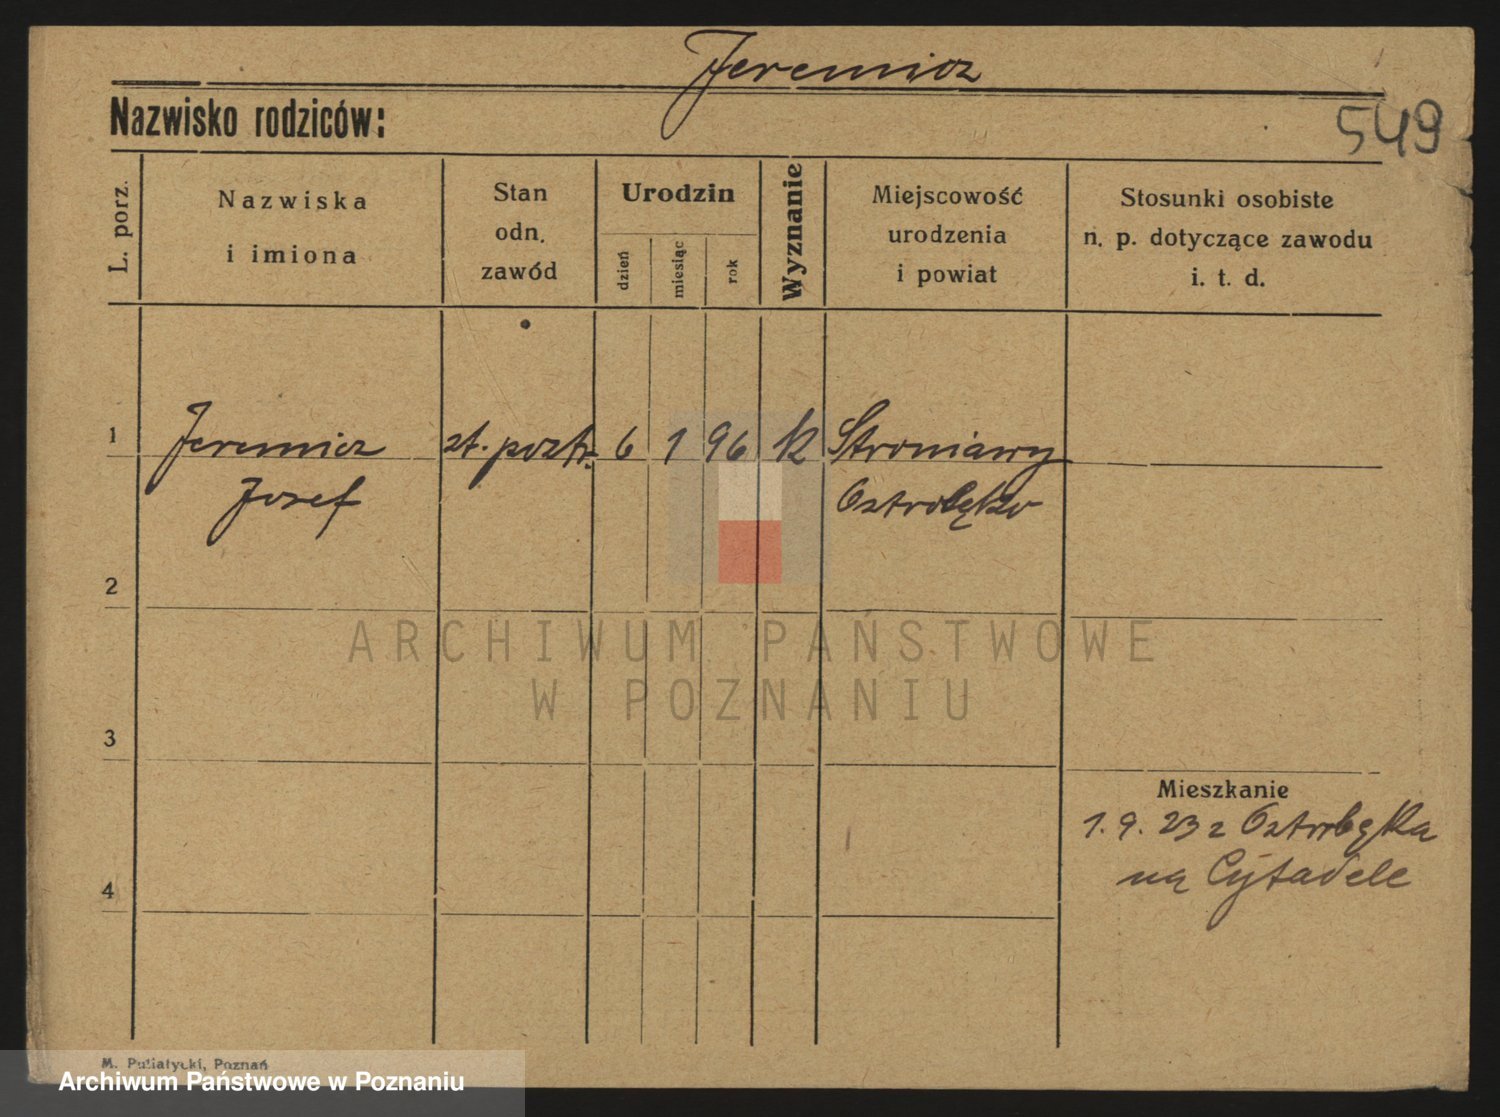 Jeremicz
Nazwisko rodziców:
549
L. porz.
Nazwiska
i imiona
Stan
odn.
zawód
Urodzin
dzień
miesiąc
rok
Wyznanie
Miejscowość
urodzenia
i powiat
Stosunki osobiste
n. p. dotyczące zawodu
i. t. d.
1 Jeremicz 6 1 96 k
Josef
2
3
4
Mieszkanie
1. 9. 23 z
na Cytadele
ARCHIWUM PAŃSTWOWE
W POZNANIU
M. Poznań
Archiwum Państwowe w Poznaniu